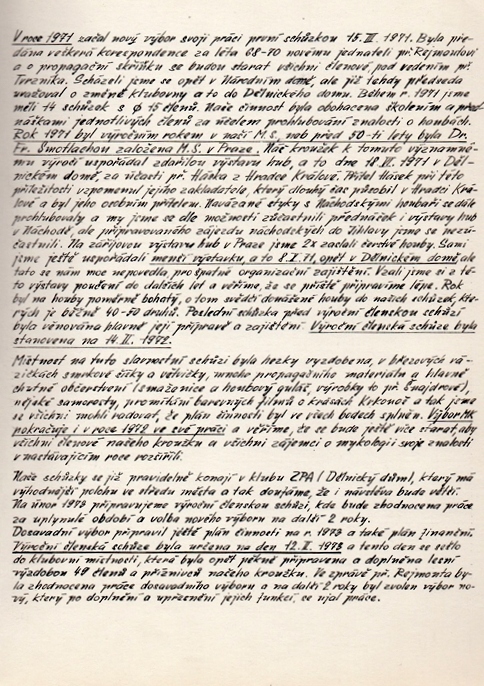 V roce 1971 začal nový výbor svoji práci první schůzkou 15. III. 1971. Byla pře-
dána veškerá korespondence za léta 68-70 novému jednateli př. Rejmontovi
a o propagační skříňku se budou starat všichni členové pod vedením př.
Tvrzníka. Scházeli jsme se opět v Národním domě, ale již tehdy předseda
uvažoval o změně klubovny a to do Dělnického domu. Během r. 1971 jsme
měli 14 schůzek s ø 15 členů. Naše činnost byla obohacena školením a před
náškami jednotlivých členů za účelem prohlubování znalostí o houbách.
Rok 1971 byl výročním rokem v naší M.S., neb před 50-ti lety byla Dr.
Fr. Smotlachou založena M.S. v Praze. Náš kroužek k tomuto významné-
mu výročí uspořádal zdařilou výstavu hub, a to dne 18. VII. 1971 v Děl-
nickém domě, za účasti př. Hlávka z Hradce Králové. Přítel Hlásek při této
příležitosti vzpomenul jejího zakladatele, který dlouhý čas působil v Hradci Krá-
lové a byl jeho osobním přítelem. Navázané styky s Náchodskými houbaři se dále
prohlubovaly a my jsme se dle možností zúčastnili přednášek i výstavy hub
v Náchodě, ale připravovaného zájezdu náchodských do Jihlavy jsme se nezú-
častnili. Na zářijovou výstavu hub v Praze jsme 2x zaslali čerstvé houby. Sami
jsme ještě uspořádali menší výstavku, a to 8. X. 71, opět v Dělnickém domě, ale
tato se nám moc nepovedla, pro špatné organizační zajištění. Vzali jsme si z té-
to výstavy poučení do dalších let a věříme, že se příště připravíme lépe. Rok
byl na houby poměrně bohatý, o tom svědčí donášené houby do našich schůzek, kte-
rých je běžně 40-50 druhů. Poslední schůzka před výroční členskou schůzí
byla věnována hlavně její přípravě a zajištění. Výroční členská schůze byla
stanovena na 14. II. 1972.
Místnost na tuto slavnostní schůzi byla hezky vyzdobena, v březových vá-
zičkách smrkové šišky a větvičky, mnoho propagačního materiálu a hlavně
chutné občerstvení (smaženice a houbový guláš, výrobky to př. Šnajdrové),
nějaké samorosty, promítání barevných filmů o krásách Krkonoš a tak jsme
se všichni mohli radovat, že plán činnosti byl ve všech bodech splněn. Výbor MK
pokračuje i v roce 1972 ve své práci a věříme, že se bude ještě více starat, aby
všichni členové našeho kroužku a všichni zájemci o mykologii svoje znalosti
v nastávajícím roce rozšířili.
Naše schůzky se již pravidelně konají v klubu ZPA (Dělnický dům), který má
výhodnější polohu ve středu města a tak doufáme, že i návštěva bude větší.
Na únor 1973 připravujeme výroční členskou schůzi, kde bude zhodnocena práce
za uplynulé období a volba nového výboru na další 2 roky.
Dosavadní výbor připravil ještě plán činnosti na r. 1973 a také plán finanční.
Výroční členská schůze byla určena na den 12. II. 1973 a tento den se sešlo
do klubovní místnosti, která byla opět pěkně připravena a doplněna lesní
výzdobou 48 členů a příznivců našeho kroužku. Ve zprávě př. Rejmonta by-
la zhodnocena práce dosavadního výboru a na další 2 roky byl zvolen výbor no-
vý, který po doplnění a upřesnění jejich funkcí, se ujal práce.